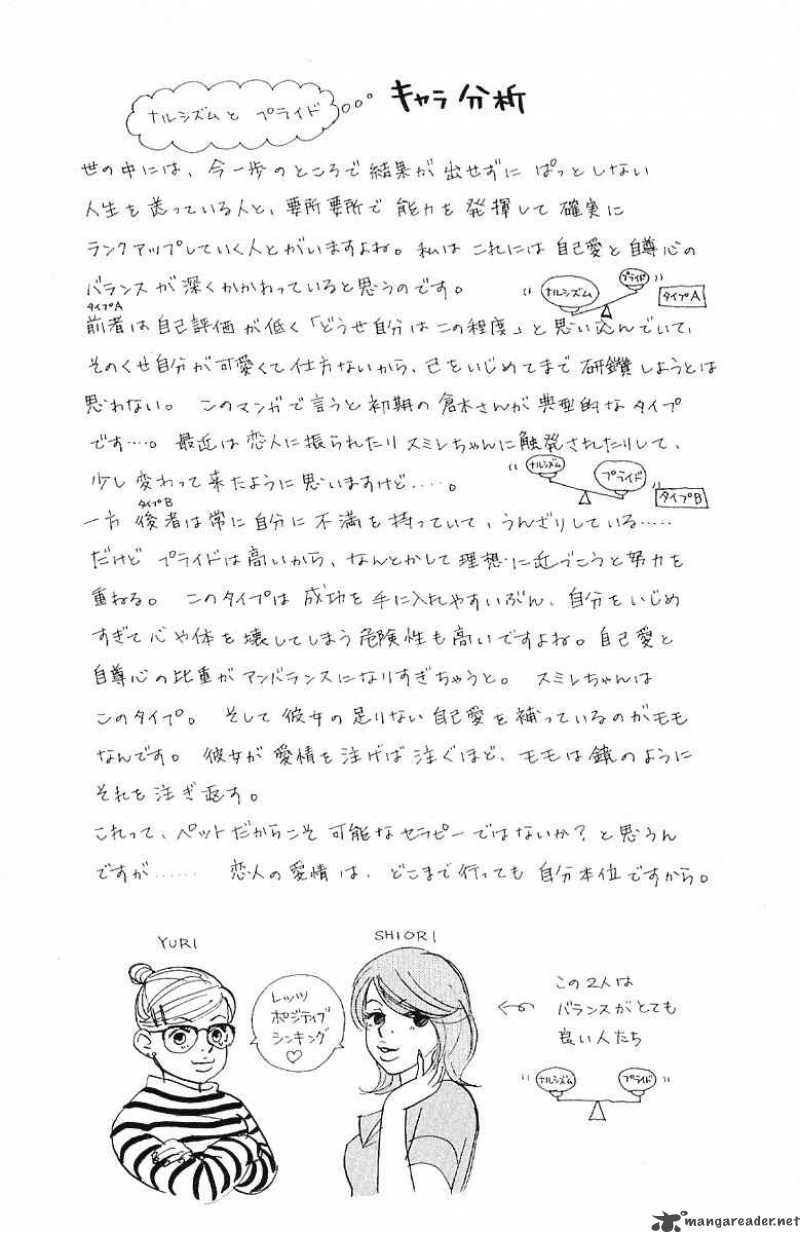 ナルシズムと プライド
キャラ分析
世の中には、今一歩のところで結果が出せずに ぱっとしない
人生を送っている人と、要所要所で能力を発揮して確実に
ランクアップしていく人とがいますよね。私は これには自己愛と自尊心の
バランスが深くかかわっていると思うのです。
ナルシズム
プライド
タイプA
タイプA
前者は自己評価が低く「どうせ自分はこの程度」と思い込んでいて、
そのくせ自分が可愛くて仕方ないから、己をいじめてまで研鑽しようとは
思わない。このマンガで言うと初期の倉木さんが典型的なタイプ
です…。最近は恋人に振られたりスミレちゃんに触発されたりして、
少し変わって来たように思いますけど……。
ナルシズム
プライド
タイプB
タイプB
一方 後者は常に自分に不満を持っていて、うんざりしている……
だけど プライドは高いから、なんとかして理想に近づこうと努力を
重ねる。このタイプは成功を手に入れやすいぶん、自分をいじめ
すぎて心や体を壊してしまう危険性も高いですよね。自己愛と
自尊心の比重がアンバランスになりすぎちゃうと。スミレちゃんは
このタイプ。そして彼女の足りない自己愛を補っているのがモモ
なんです。彼女が愛情を注げば注ぐほど、モモは鏡のように
それを注ぎ返す。
これって、ペットだからこそ可能なセラピーではないか?と思うん
ですが…… 恋人の愛情は、どこまで行っても自分本位ですから。
YURI
SHIORI
レッツ
ポジティブ
シンキング
♡
この2人は
バランスがとても
良い人たち
ナルシズム
プライド
mangareader.net